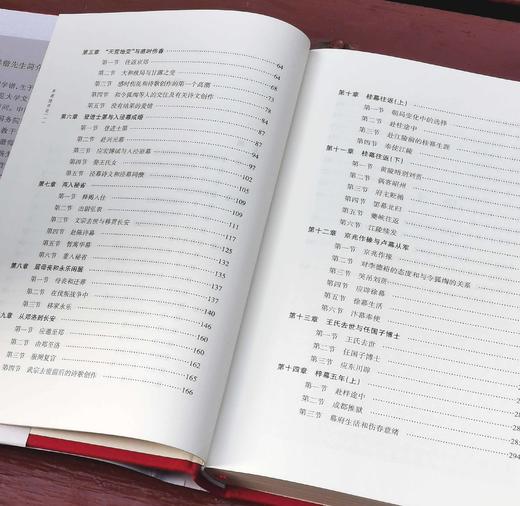 第五章 “天荒地变”与感时伤春
第一节 往返京郑 64
第二节 大和政局与甘露之变 64
第三节 感时伤乱和诗歌创作的第一个高潮
第四节 和令狐绹等人的交往及有关诗文创作
第五节 没有结果的爱情
第六章 登进士第与入泾幕成婚
第一节 登进士第 87
第二节 赴兴元幕
第三节 应宏博试与入泾原幕
第四节 娶王氏女
第五节 泾幕诗文和泾幕同僚
第七章 两入秘省
第一节 释褐入仕
第二节 出尉弘农
第三节 文宗去世与移贯长安 111
第四节 赴陈许幕 116
第五节 暂寓华幕
第六节 重入秘省
第八章 居母丧和永乐闲居 135
第一节 母丧和迁葬 135
第二节 在伐叛战争中 140
第三节 移家永乐 145
九章 从郑洛到长安
第一节 应邀至郑
第二节 由郑至洛
第三节 服阕复官 165
第四节 武宗去世前后的诗歌创作 166
第十章 桂幕往返(上)
第一节 朝局变化中的选择
第二节 赴桂途中
第三节 赴江陵前的桂幕生涯
第四节 奉使江陵
第十一章 桂幕往返(下)
第一节 黄陵晤别刘蕡
第二节 祸客昭州
第三节 府主贬循
第四节 罢幕北归
第五节 夔峡往返
第六节 江陵续发
第十二章 京兆作掾与卢幕从军
第一节 京兆作掾
第二节 对李德裕的态度和与令狐绹的关系
第三节 哭吊刘蕡
第四节 应辟徐幕
第五节 徐幕生活
第六节 汴幕奉使
第十三章 王氏去世与任国子博士
第一节 王氏去世
第二节 任国子博士
第三节 应东川辟
第十四章 梓幕五年(上)
第一节 赴梓途中
第二节 成都推狱
第三节 幕府生活和伤春意绪 294